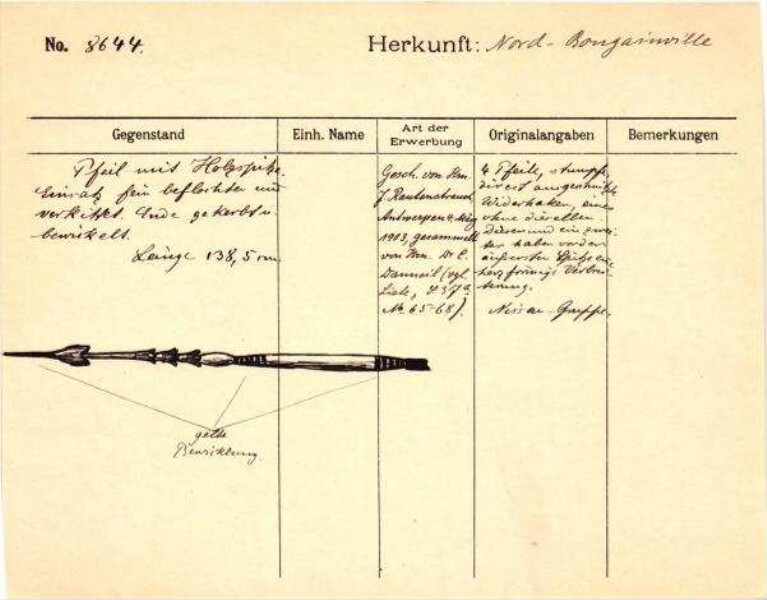 No. 8644.
Herkunft: Nord-Bougainville
Gegenstand
Einh. Name
Art der Erwerbung
Originalangaben
Bemerkungen
Pfeil mit Holzspitze.
Einsatz fein beflochten und
verkittet. Ende gekerbt u.
bewickelt.
Länge 138,5 cm
Gesch. von Hrn.
J. Rautenstrauch,
Antwerpen
1903, gesammelt
von Hrn. Dr E.
Danneil (vgl.
Liste, S 37a
No 65-68).
4 Pfeile, stumpfe,
ausgeschnitzte
Widerhaken, einer
ohne dieselben.
Dieser und ein zwei-
ter haben vor der
äußersten Spitze ein
herzförmige Verbrei-
terung.
Nissan-Gruppe.
gelbe
Bewicklung.